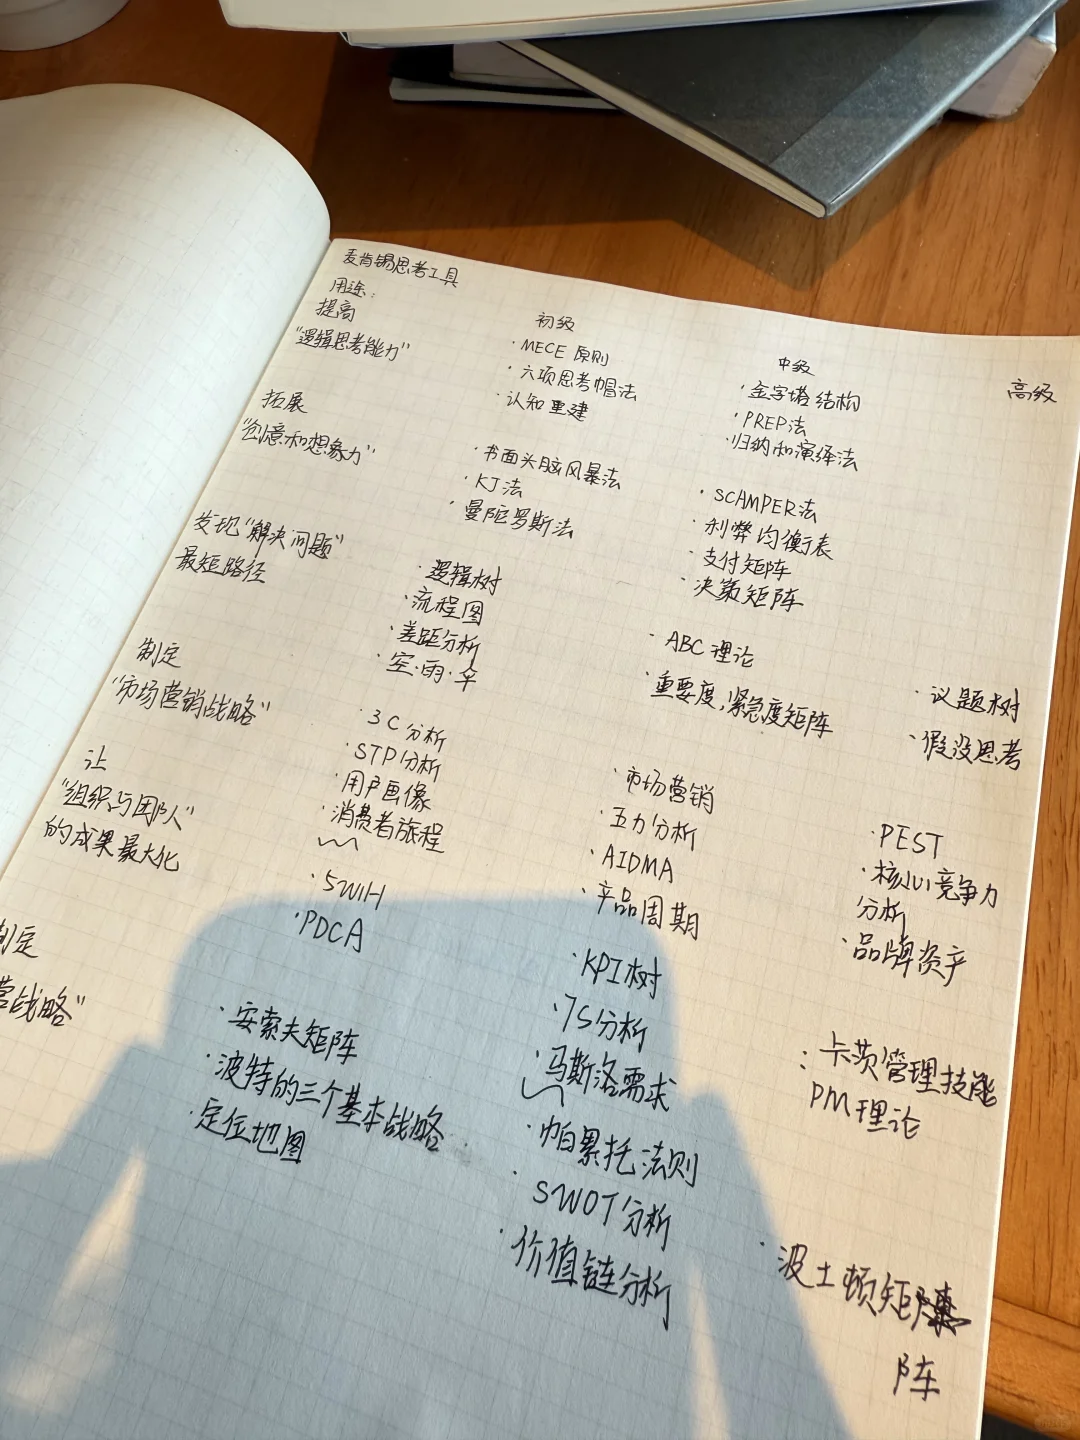 麦肯锡思考工具
用途：
提高
"逻辑思考能力"
初级
· MECE 原则
· 六项思考帽法
· 认知重建
中级
· 金字塔结构
· PREP法
· 归纳和演绎法
高级
拓展
"创意和想象力"
· 书面头脑风暴法
· KJ法
· 曼陀罗斯法
· SCAMPER法
· 利弊均衡表
· 支付矩阵
· 决策矩阵
发现"解决问题"
最短路径
· 逻辑树
· 流程图
· 差距分析
· 空·雨·伞
· ABC理论
· 重要度,紧急度矩阵
· 议题树
· 假设思考
制定
"市场营销战略"
· 3C分析
· STP分析
· 用户画像
· 消费者旅程
· 市场营销
· 五力分析
· AIDMA
· 产品周期
· PEST
· 核心竞争力
分析
· 品牌资产
让
"组织与团队"
的成果最大化
· 5W1H
· PDCA
· KPI树
· 7S分析
· 马斯洛需求
· 卡茨管理技能
· PM理论
制定
营战略"
· 安索夫矩阵
· 波特的三个基本战略
· 定位地图
· 帕累托法则
· SWOT分析
· 价值链分析
· 波士顿矩
阵